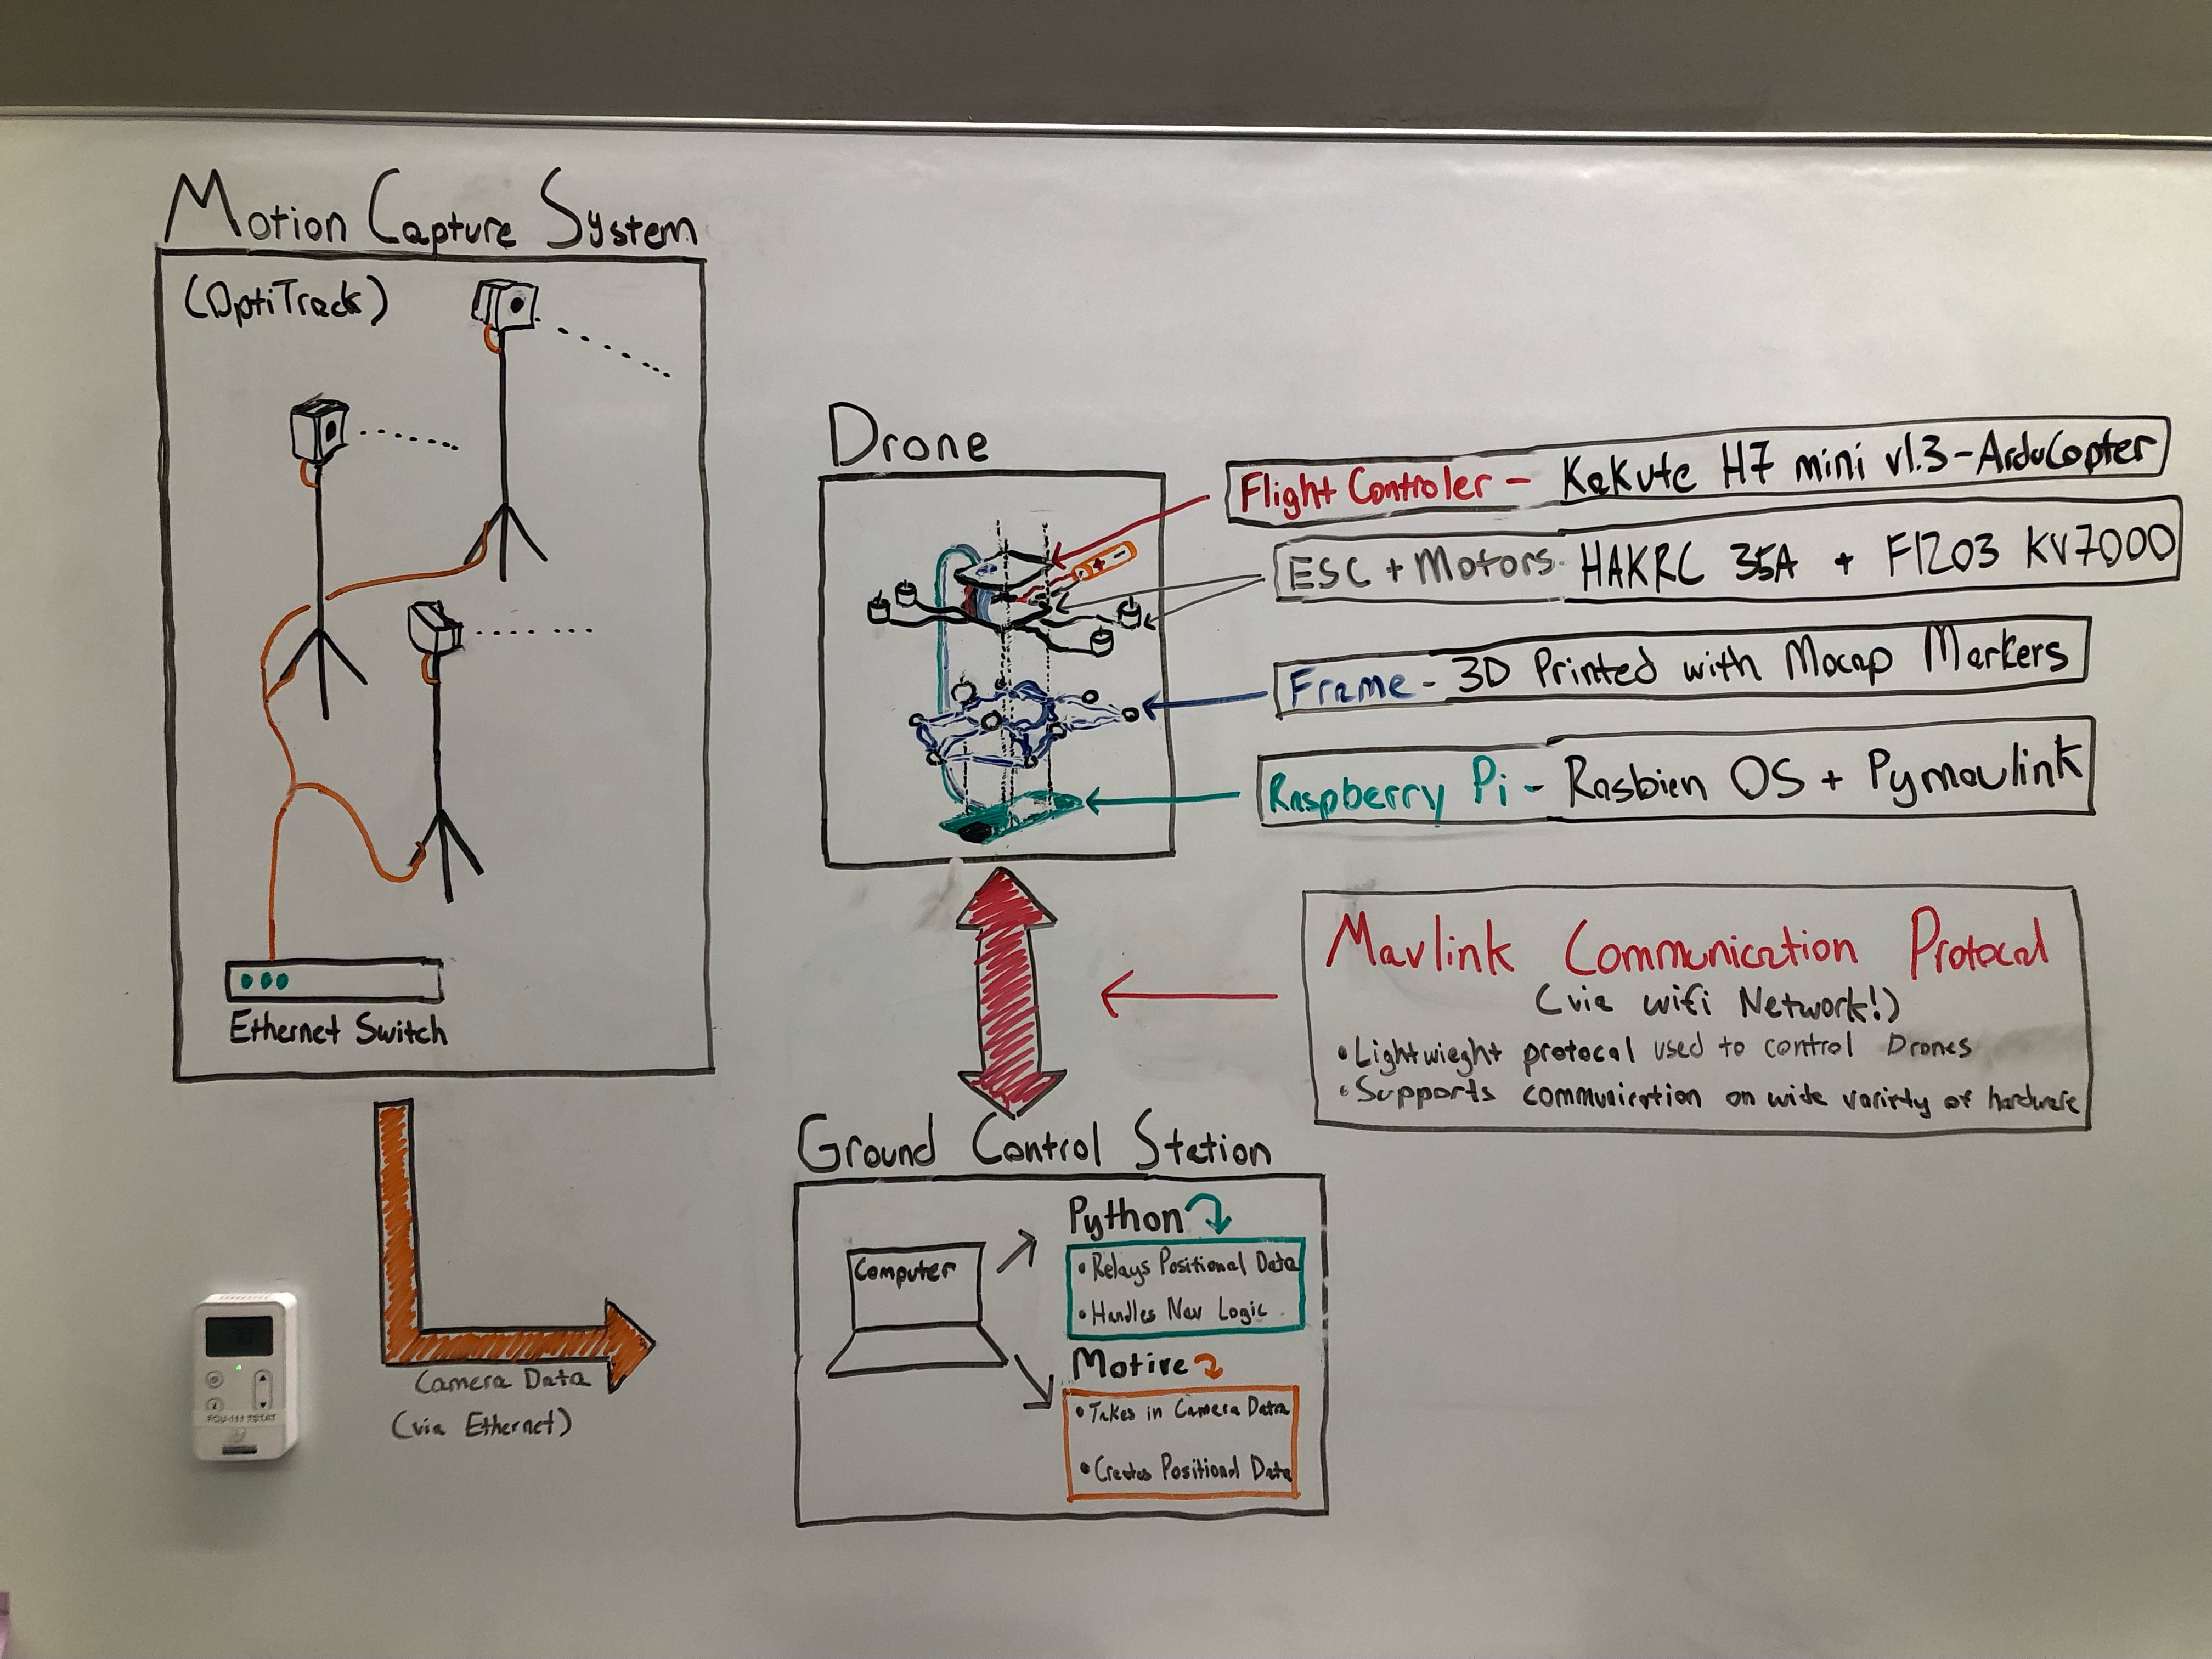 Motion Capture System
(OptiTrack)
Ethernet Switch
Camera Data
(via Ethernet)
FCU-111 TSTAT
Drone
Flight Controler - Kakute H7 mini v1.3-ArduCopter
ESC + Motors - HAKRC 35A + F1203 KV7000
Frame - 3D Printed with Mocap Markers
Raspberry Pi - Rasbian OS + Pymavlink
+ -
Mavlink Communication Protocal
(via wifi Network!)
• Lightwieght protocal used to control Drones
• Supports communication on wide variety of hardware
Ground Control Station
Computer
Python
• Relays Positional Data
• Handles Nav Logic
Motive
• Takes in Camera Data
• Creates Positional Data